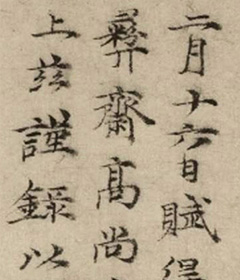 二月十六日賦得
彝齋高尚
上兹謹錄以